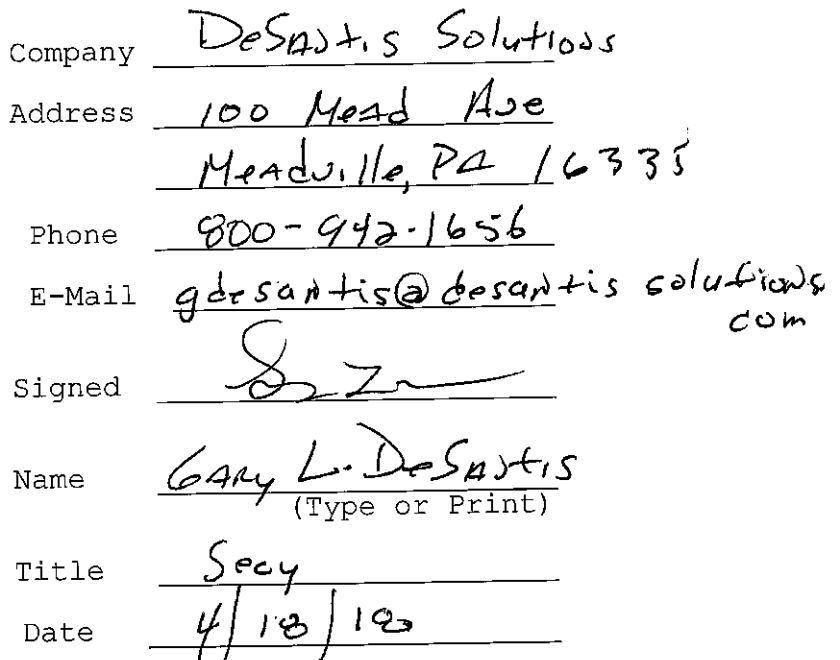 Company DeSantis Solutions
Address 100 Mead Ave
Meadville, PA 16335
Phone 800-942-1656
E-Mail gdesantis@desantis solutions
com
Signed
Name Gary L. DeSantis
(Type or Print)
Title Secy
Date 4/18/18